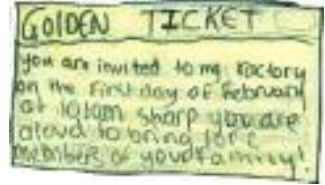 GOlDEN TICKET
you are invited to my factory
on the first day of February
at 10 am sharp you are
aloud to bring 1 or 2
members of your family!